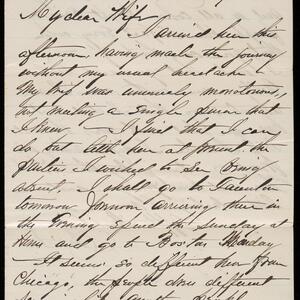 My dear Wife
I arrived here this
afternoon, having made the journey
without my usual headache.
My trip was unusually monotonous,
not meeting a single person that
I knew. I find that I can
do but little here at present the
parties I wished to see being
absent. I shall go to Taunton
tomorrow forenoon arriving there in
the evening spend the Sunday at
home and go to Boston Monday
It seems so different here from
Chicago, the people look different